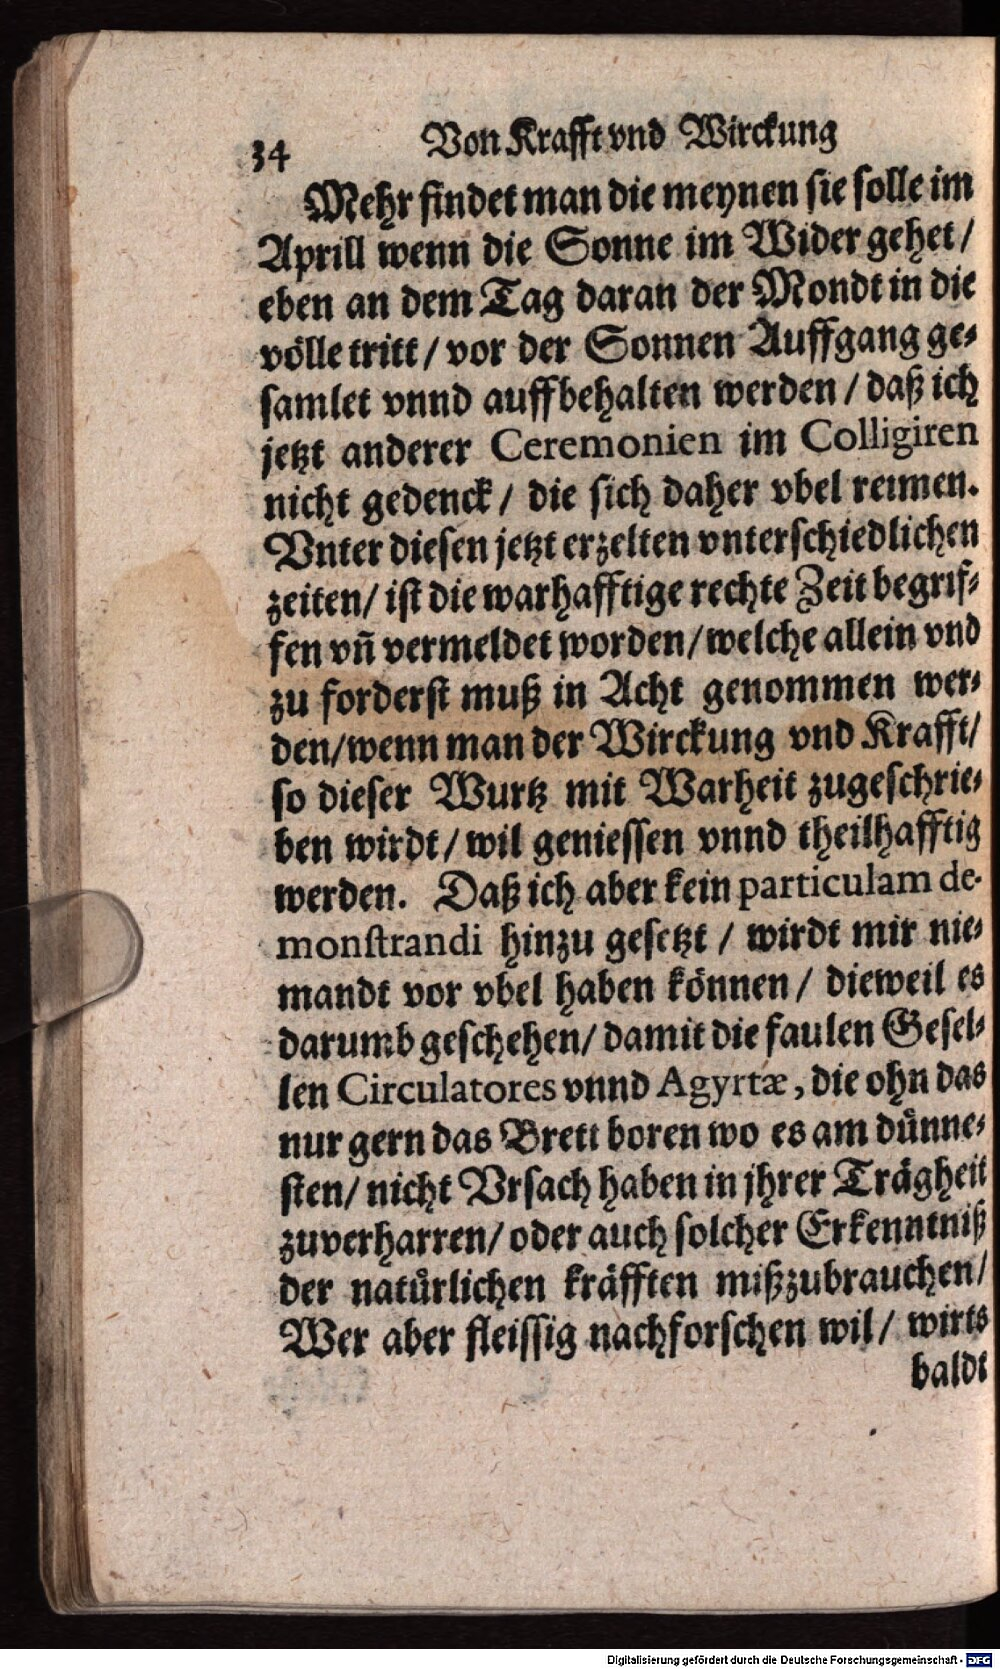 34
Von Krafft vnd Wirckung
Mehr findet man die meynen sie solle im
Aprill wenn die Sonne im Wider gehet /
eben an dem Tag daran der Mondt in die
völle tritt / vor der Sonnen Auffgang ge-
samlet vnnd auffbehalten werden / daß ich
jetzt anderer Ceremonien im Colligiren
nicht gedenck / die sich daher vbel reimen.
Vnter diesen jetzt erzelten vnterschiedlichen
zeiten / ist die warhafftige rechte Zeit begrif-
fen vñ vermeldet worden / welche allein vnd
zu forderst muß in Acht genommen wer-
den / wenn man der Wirckung vnd Krafft /
so dieser Wurtz mit Warheit zugeschrie-
ben wirdt / wil geniessen vnnd theilhafftig
werden. Daß ich aber kein particulam de-
monstrandi hinzu gesetzt / wirdt mir nie-
mandt vor vbel haben können / dieweil es
darumb geschehen / damit die faulen Gesel-
len Circulatores vnnd Agyrtæ, die ohn das
nur gern das Brett boren wo es am dünne-
sten / nicht Vrsach haben in jhrer Trägheit
zuverharren / oder auch solcher Erkenntniß
der natürlichen kräfften mißzubrauchen /
Wer aber fleissig nachforschen wil / wirts
baldt
Digitalisierung gefördert durch die Deutsche Forschungsgemeinschaft - DFG